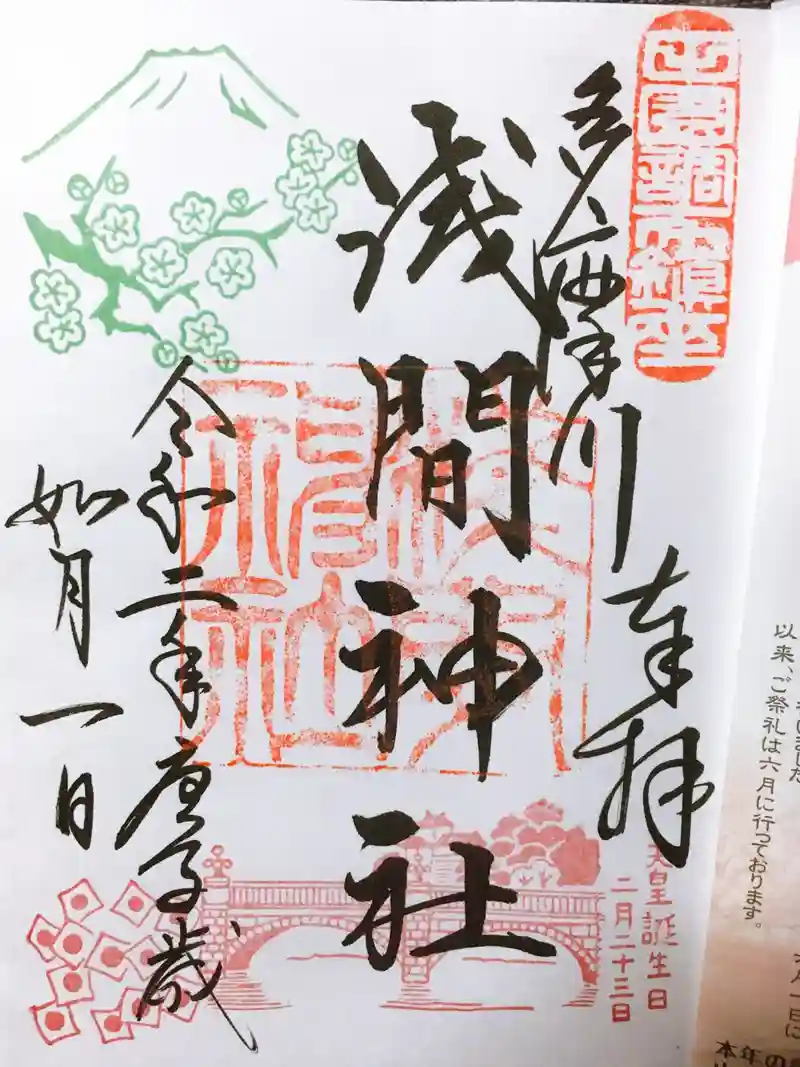 田園調布鎮座
多摩川
奉拝
浅間神社
浅間神社
令和二年庚子歳
如月一日
天皇誕生日
二月二十三日
以来、ご祭礼は六月に行っております。
本年の